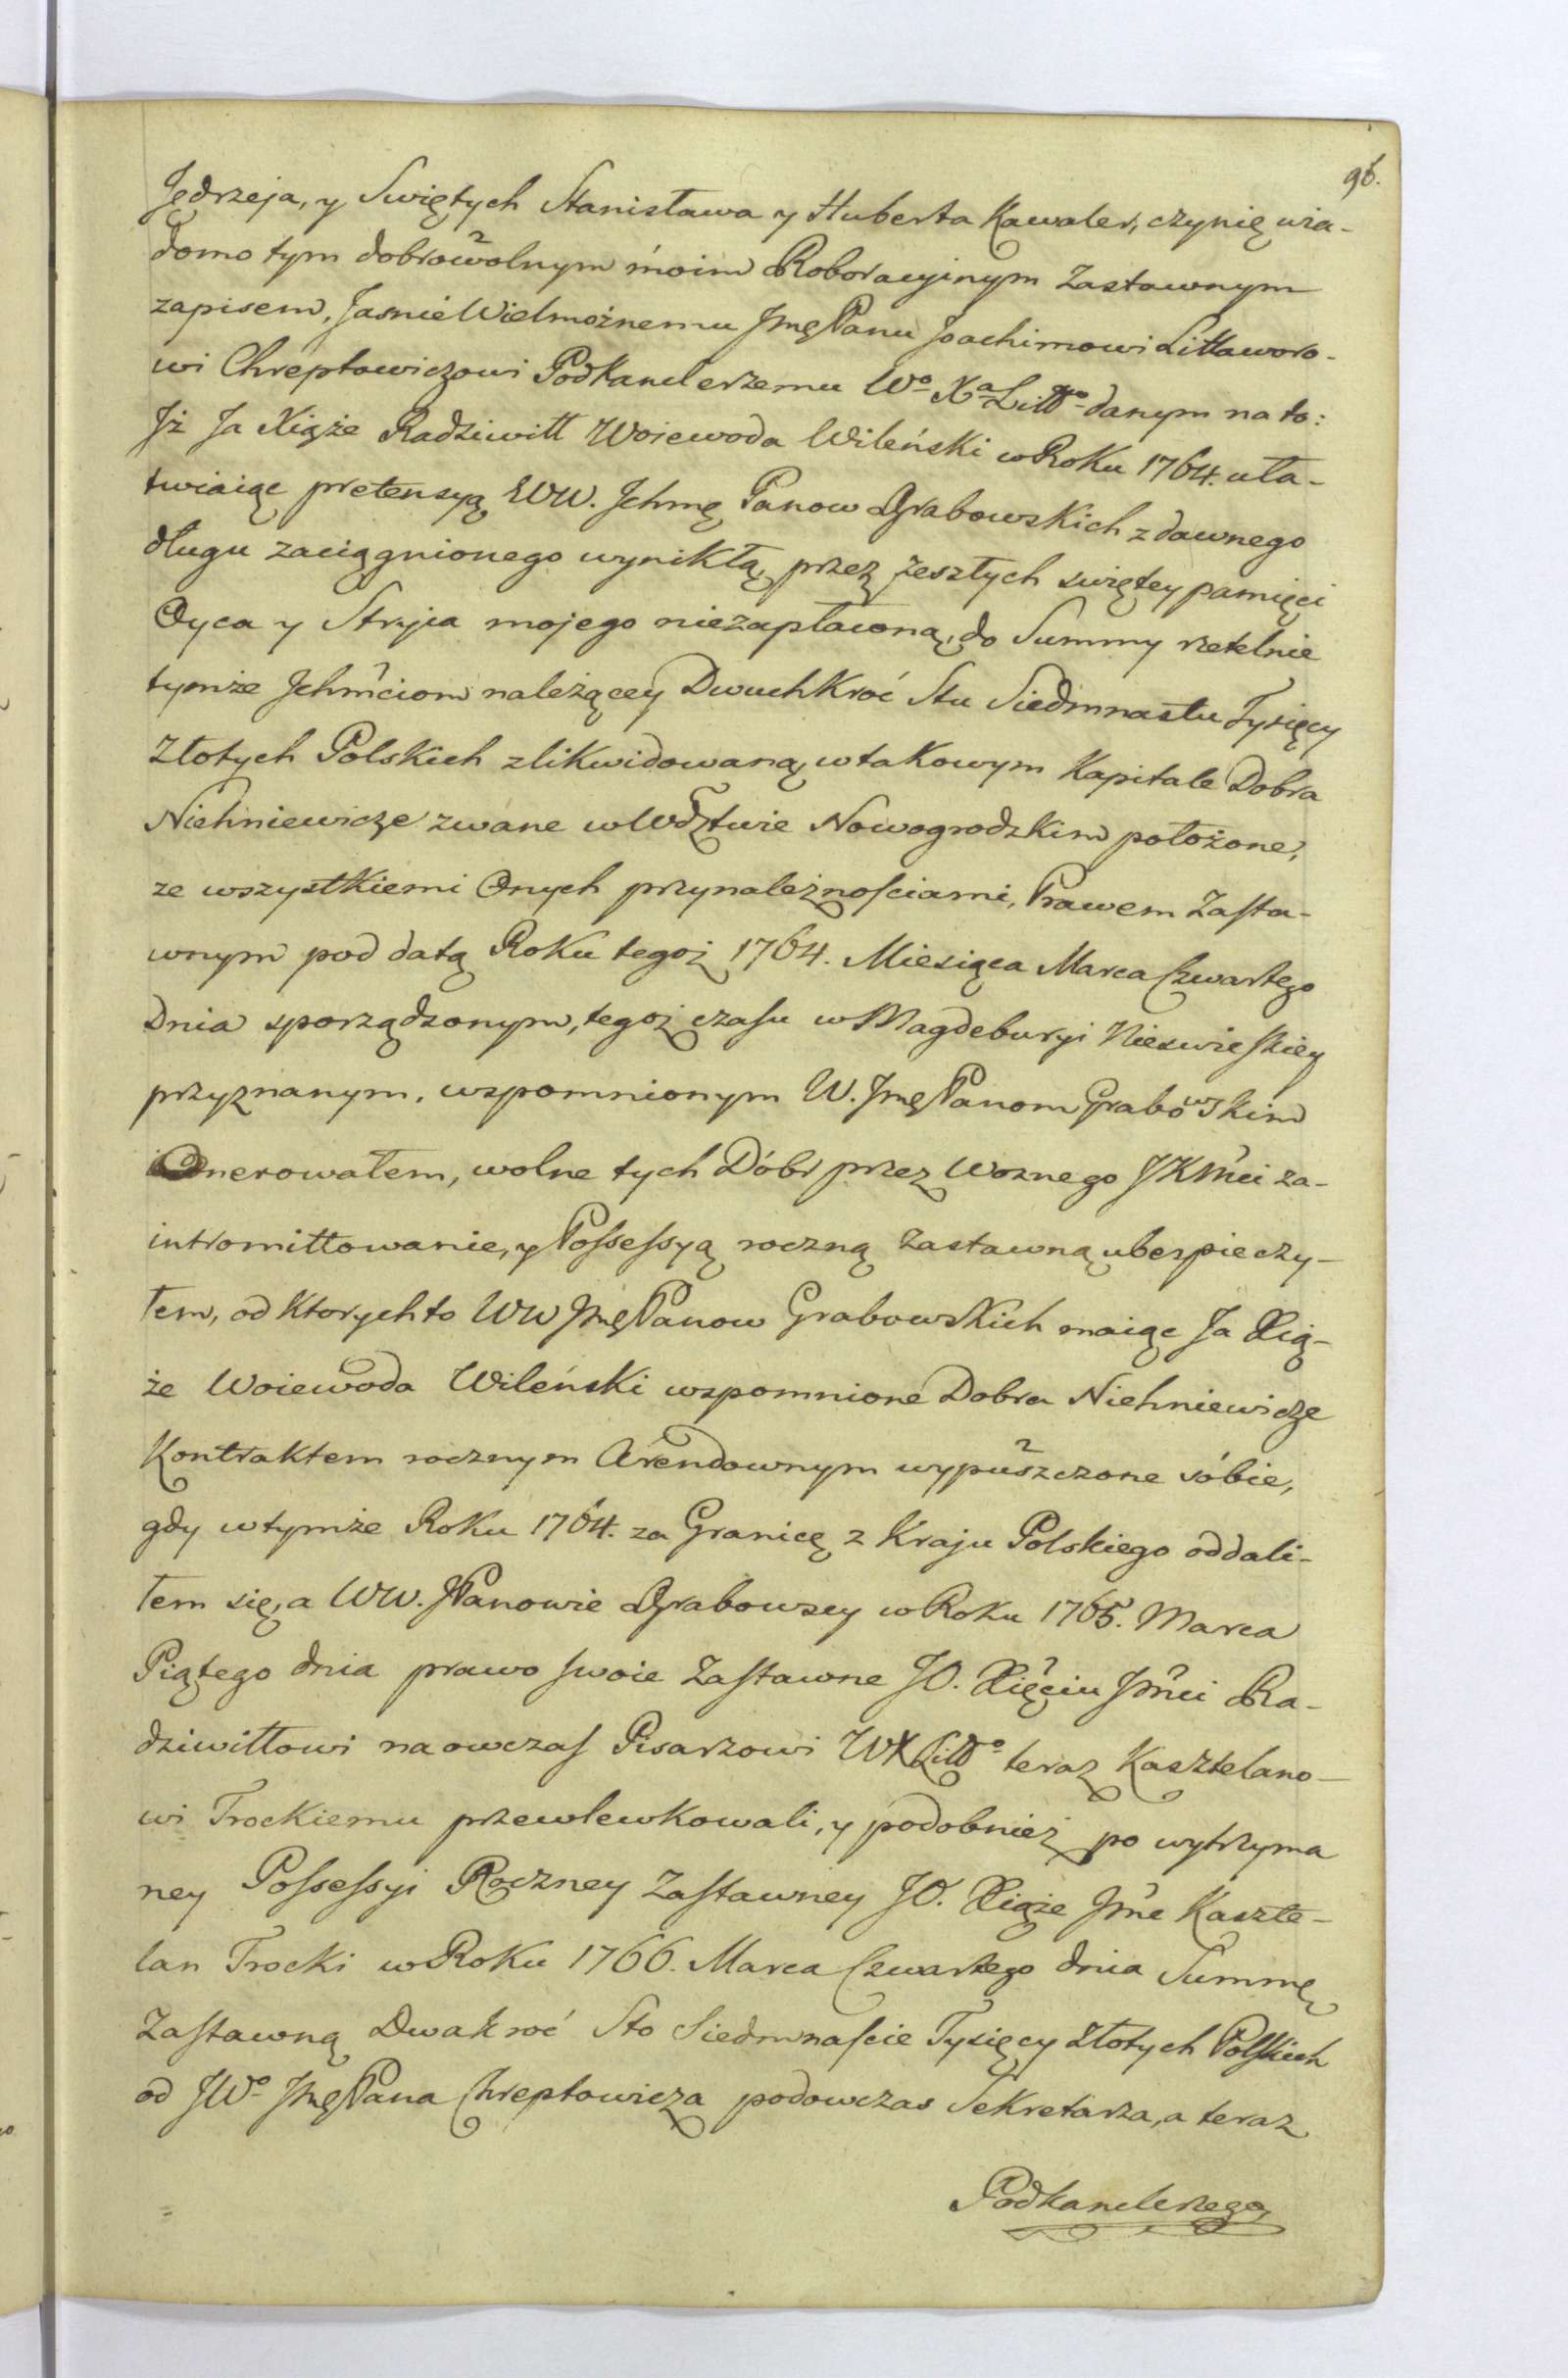 96.
Jędrzeja, y Swiętych Stanisława y Huberta Kawaler, czynię wia-
domo tym dobrowolnym moim Roboracyinym Zastawnym
zapisem, Jasnie Wielmożnemu Jmę Panu Joachimowi Littaworo-
wi Chreptowiczowi Podkanclerzemu Wo Xa Litto danym na to:
Jż Ja Xiąże Radziwiłł Woiewoda Wileński w Roku 1764. uła-
twiaiąc pretensyą WW. Jchmę Panow Grabowskich z dawnego
długu zaciągnionego wynikłą, przez zeszłych swiętey pamięci
Oyca y Stryia mojego niezapłaconą, do Summy rzetelnie
tymże Jchmciom należącey Dwuchkroć Stu Siedmnastu Tysięcy
Złotych Polskich zlikwidowaną w takowym Kapitale Dobra
Niehniewicze zwane w Wdztwie Nowogrodzkim położone,
ze wszystkiemi Onych przynależnościami, Prawem Zasta-
wnym pod datą Roku tegoż 1764. Miesiąca Marca Czwartego
Dnia sporządzonym, tegoż czasu w Magdeburyi Nieswieskiey
przyznanym, wspomnionym W. Jmę Panom Grabowskim
Onerowałem, wolne tych Dóbr przez Woznego JKMci za-
intromittowanie, y Possessyą roczną zastawną ubespieczy-
łem, od ktorych to WW Jmę Panow Grabowskich maiąc Ja Xią-
że Woiewoda Wileński wspomnione Dobra Niehniewicze
Kontraktem rocznym Arendownym wypuszczone sóbie,
gdy w tymże Roku 1764. za Granicę z Kraju Polskiego oddali-
łem się, a WW. JPanowie Grabowscy w Roku 1765. Marca
Piątego dnia prawo swoie Zastawne JO. Xięciu Jmci Ra-
dziwiłłowi na owczas Pisarzowi WXLitto teraz Kasztelano-
wi Trockiemu przewlewkowali, y podobnież po wytrzyma
ney Possessyi Roczney Zastawney JO. Xiąże Jmc Kaszte-
lan Trocki w Roku 1766. Marca Czwartego dnia Summę
Zastawną Dwakroć Sto Siedmnaście Tysięcy Złotych Polskich
od JWo Jmę Pana Chreptowicza podowczas Sekretarza, a teraz
Podkanclerzego